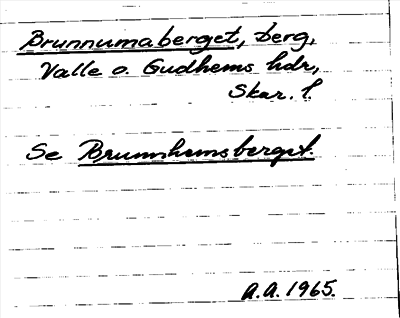 Brunnumaberget, berg,
Valle o. Gudhems hdr,
Skar. l.
Se Brunnhemsberget.
A.A. 1965.